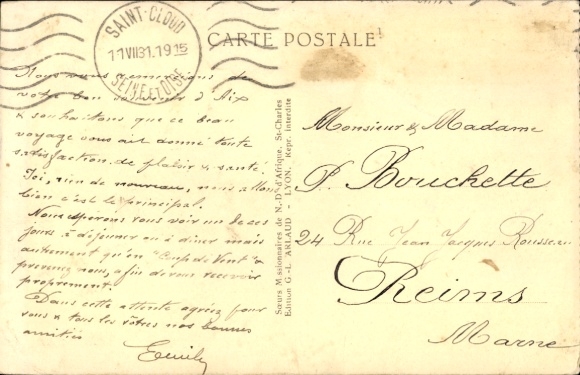 CARTE POSTALE
SAINT-CLOUD
11 VII 31. 19 15
SEINE ET OISE
Nous vous remercions de
votre bon souvenir d'Aix
& souhaitons que ce beau
voyage vous ait donné toute
satisfaction, de plaisir & santé.
Ici, rien de nouveau, nous allons
bien c'est le principal.
Nous espérons vous voir un de ces
jours à déjeuner ou à dîner mais
autrement qu'en "Coup de Vent" &
prevenez nous, afin de vous recevoir
proprement.
Dans cette attente agréez pour
vous & tous les vôtres nos bonnes
amitiés
Sœurs Missionnaires de N.-D. d'Afrique, St-Charles
Edition G.-L. ARLAUD - LYON. Repr. interdite
Monsieur & Madame
P. Bouchette
24 Rue Jean Jacques Rousseau
Reims
Marne